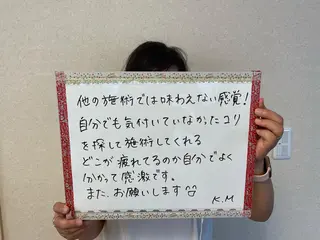 他の施術では味わえない感覚!
自分でも気付いていなかったコリ
を探して施術してくれる
どこが疲れてるのか自分でよく
分かって感激です。
また、お願いします
K.M